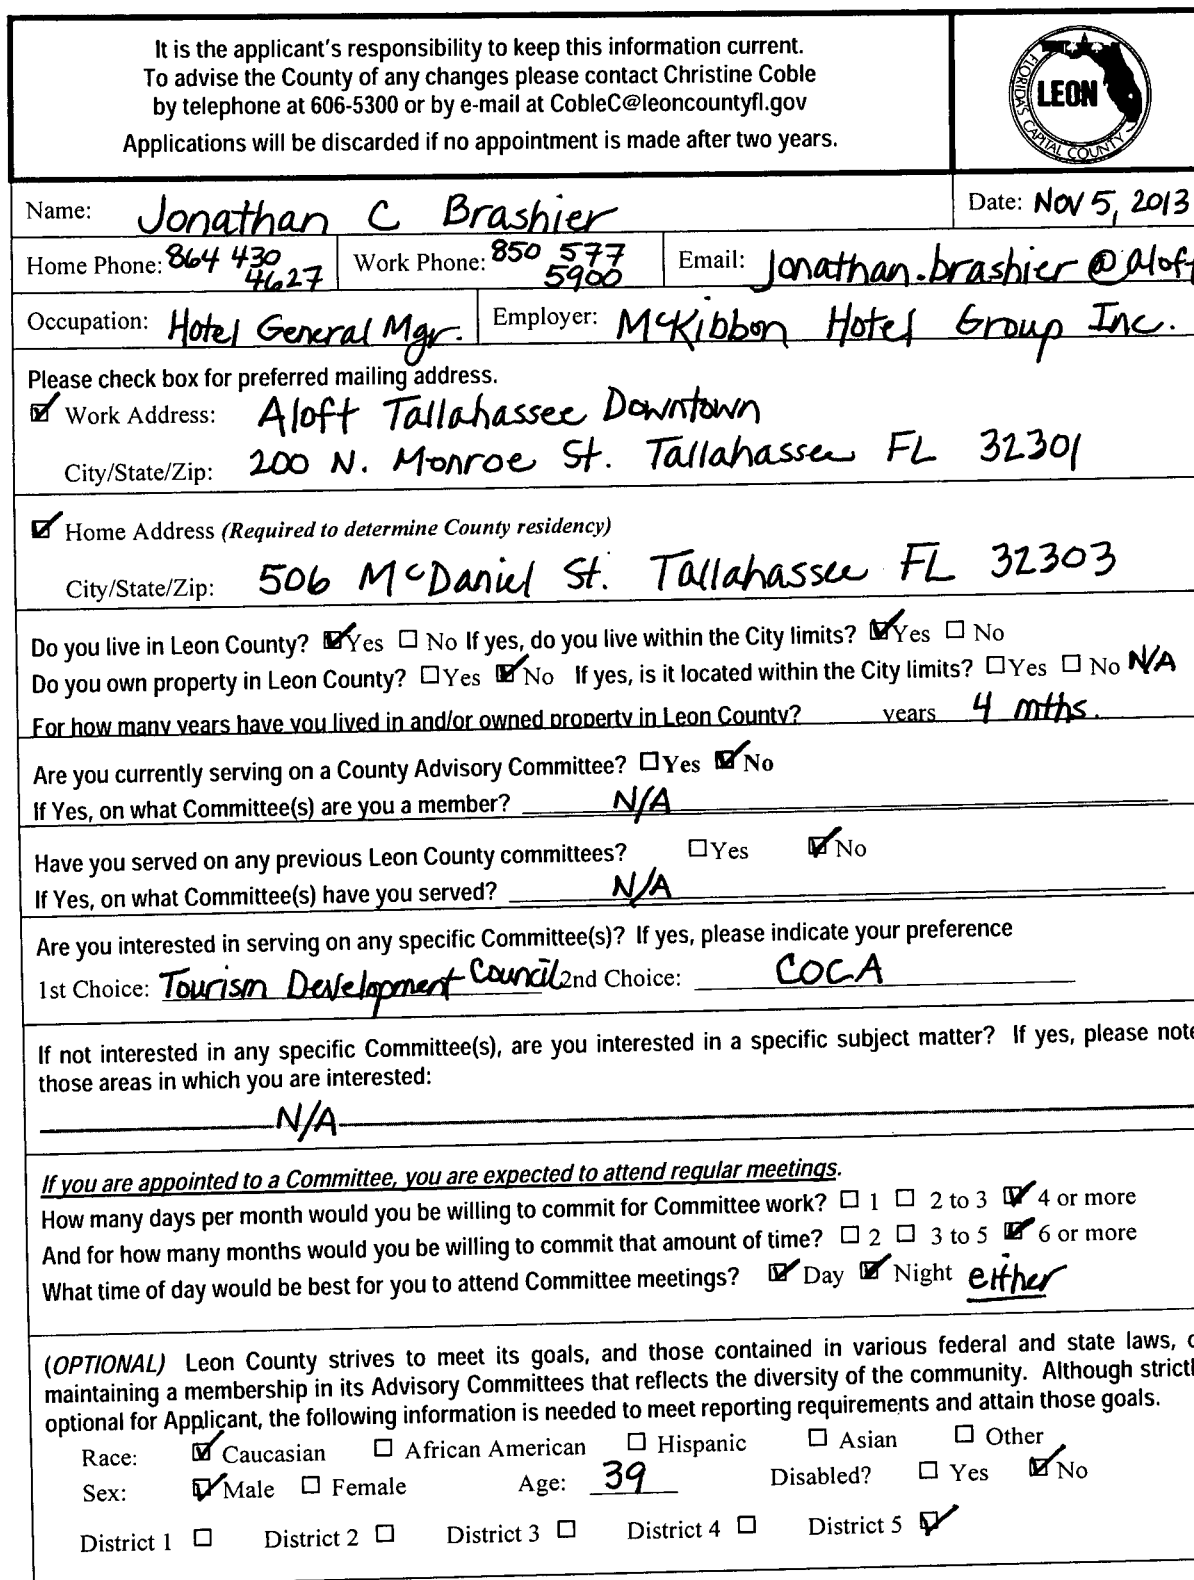 It is the applicant's responsibility to keep this information current.
To advise the County of any changes please contact Christine Coble
by telephone at 606-5300 or by e-mail at CobleC@leoncountyfl.gov
Applications will be discarded if no appointment is made after two years.
LEON
FLORIDA'S CAPITAL COUNTY
Name: Jonathan C Brashier Date: Nov 5, 2013
Home Phone: 864 430 4627 Work Phone: 850 577 5900 Email: jonathan.brashier@aloft
Occupation: Hotel General Mgr. Employer: McKibbon Hotel Group Inc.
Please check box for preferred mailing address.
☑ Work Address: Aloft Tallahassee Downtown
City/State/Zip: 200 N. Monroe St. Tallahassee FL 32301
☑ Home Address (Required to determine County residency)
City/State/Zip: 506 McDaniel St. Tallahassee FL 32303
Do you live in Leon County? ☑Yes ☐ No If yes, do you live within the City limits? ☑Yes ☐ No
Do you own property in Leon County? ☐Yes ☑No If yes, is it located within the City limits? ☐Yes ☐ No N/A
For how many years have you lived in and/or owned property in Leon County? years 4 mths.
Are you currently serving on a County Advisory Committee? ☐Yes ☑No
If Yes, on what Committee(s) are you a member? N/A
Have you served on any previous Leon County committees? ☐Yes ☑No
If Yes, on what Committee(s) have you served? N/A
Are you interested in serving on any specific Committee(s)? If yes, please indicate your preference
1st Choice: Tourism Development Council 2nd Choice: COCA
If not interested in any specific Committee(s), are you interested in a specific subject matter? If yes, please note
those areas in which you are interested:
N/A
If you are appointed to a Committee, you are expected to attend regular meetings.
How many days per month would you be willing to commit for Committee work? ☐ 1 ☐ 2 to 3 ☑ 4 or more
And for how many months would you be willing to commit that amount of time? ☐ 2 ☐ 3 to 5 ☑ 6 or more
What time of day would be best for you to attend Committee meetings? ☑ Day ☑ Night either
(OPTIONAL) Leon County strives to meet its goals, and those contained in various federal and state laws, o
maintaining a membership in its Advisory Committees that reflects the diversity of the community. Although strictl
optional for Applicant, the following information is needed to meet reporting requirements and attain those goals.
Race: ☑ Caucasian ☐ African American ☐ Hispanic ☐ Asian ☐ Other
Sex: ☑ Male ☐ Female Age: 39 Disabled? ☐ Yes ☑ No
District 1 ☐ District 2 ☐ District 3 ☐ District 4 ☐ District 5 ☑